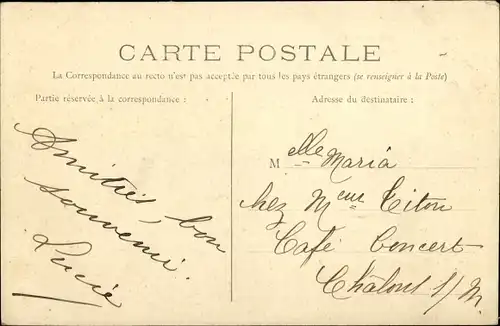 CARTE POSTALE
La Correspondance au recto n'est pas acceptée par tous les pays étrangers (se renseigner à la Poste)
Partie réservée à la correspondance :
Amitiés, bon
souvenir.
Lucie
Adresse du destinataire :
Melle Maria
chez Mme Titon
Café Concert
Châlons s/M.